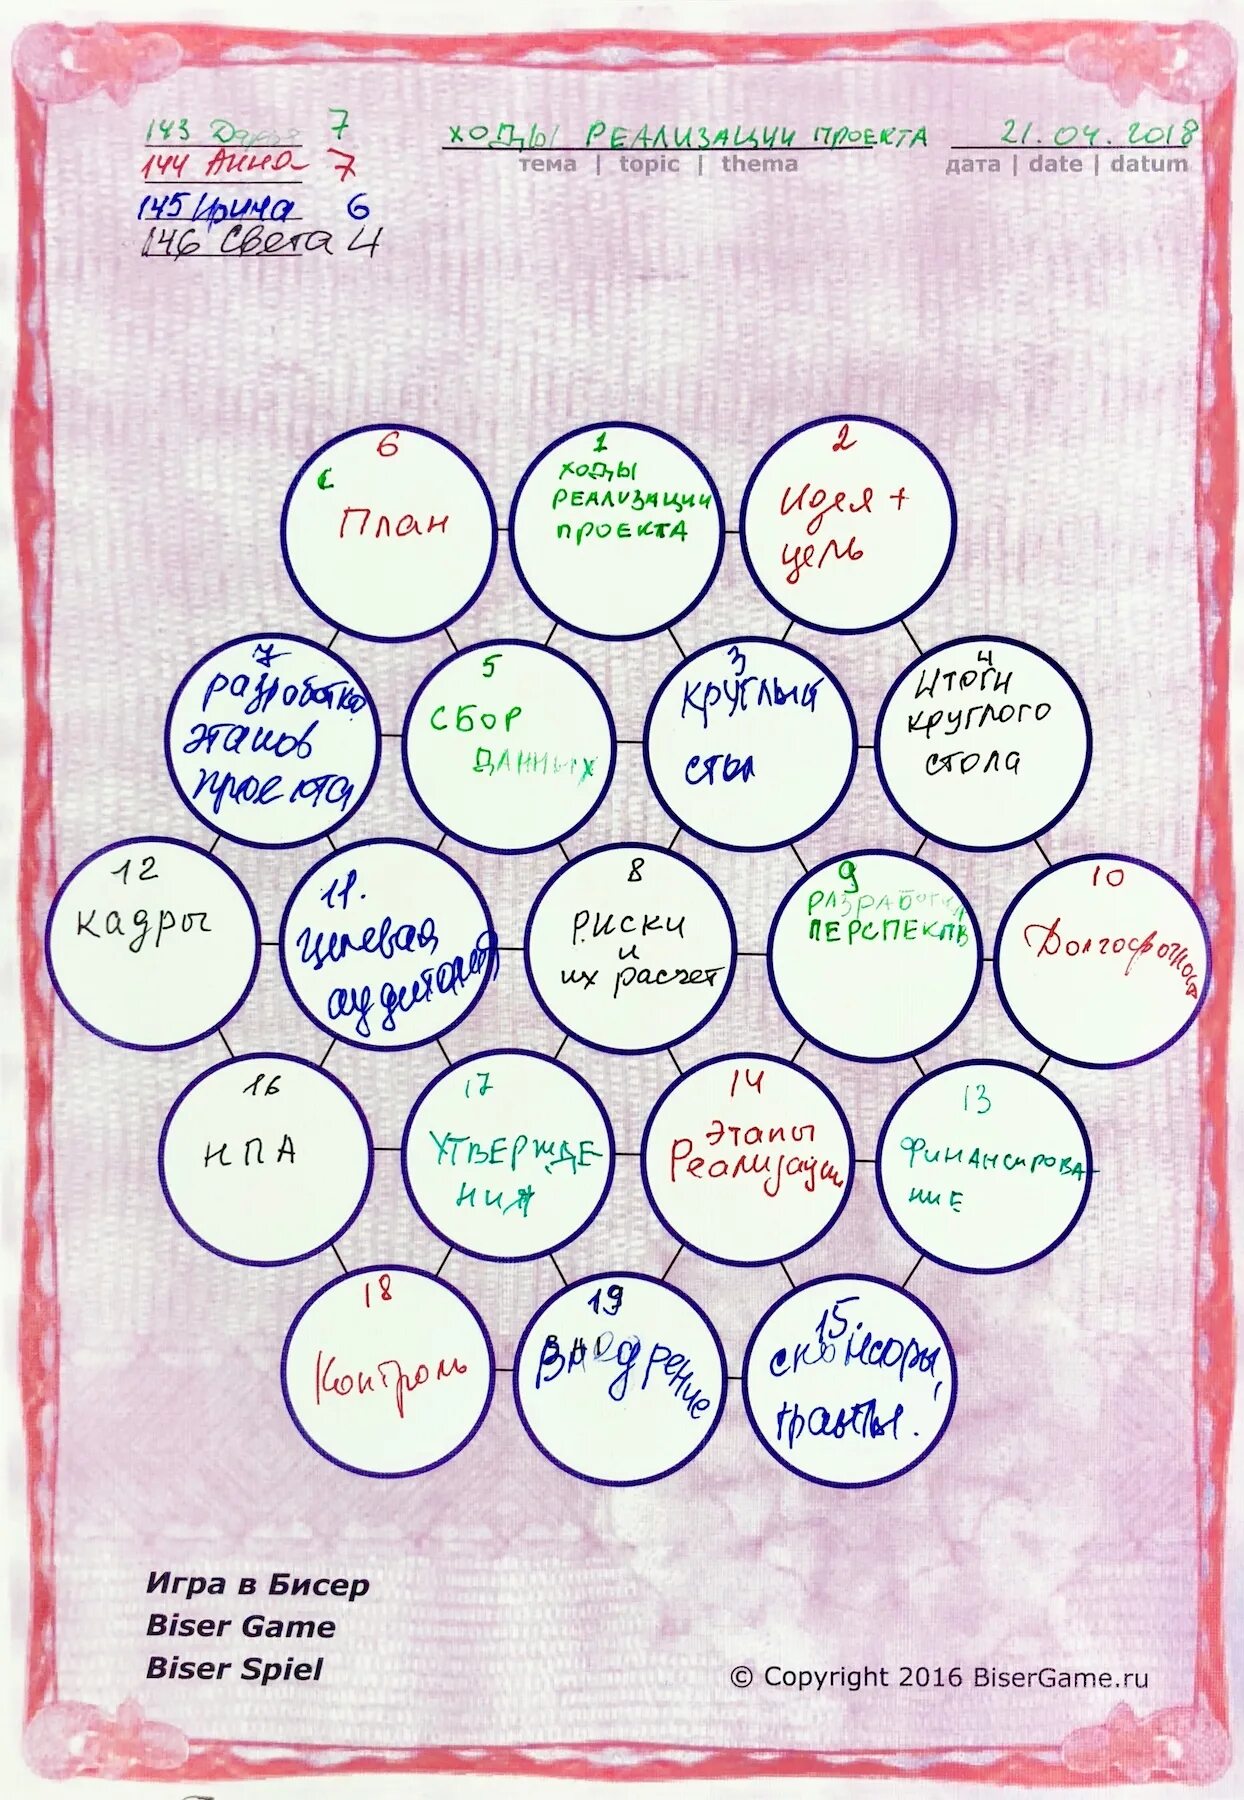 143 Дарья 7
144 Анна 7
145 Ирина 6
146 Света 4
ХОДЫ РЕАЛИЗАЦИИ ПРОЕКТА
тема | topic | thema
21.04.2018
дата | date | datum
6
С
План
1
ХОДЫ
РЕАЛИЗАЦИИ
ПРОЕКТА
2
Идея +
цель
7
разработка
этапов
проекта
5
СБОР
ДАННЫХ
3
Круглый
стол
4
Итоги
круглого
стола
12
кадры
11.
целевая
аудитория
8
Риски
и
их расчет
9
РАЗРАБОТКА
ПЕРСПЕКТИВ
10
16
НПА
17
УТВЕРЖДЕ-
НИЯ
14
Этапы
Реализации
13
Финансирова-
ние
18
Контроль
19
Внедрение
15.
спонсоры,
гранты.
Игра в Бисер
Biser Game
Biser Spiel
© Copyright 2016 BiserGame.ru